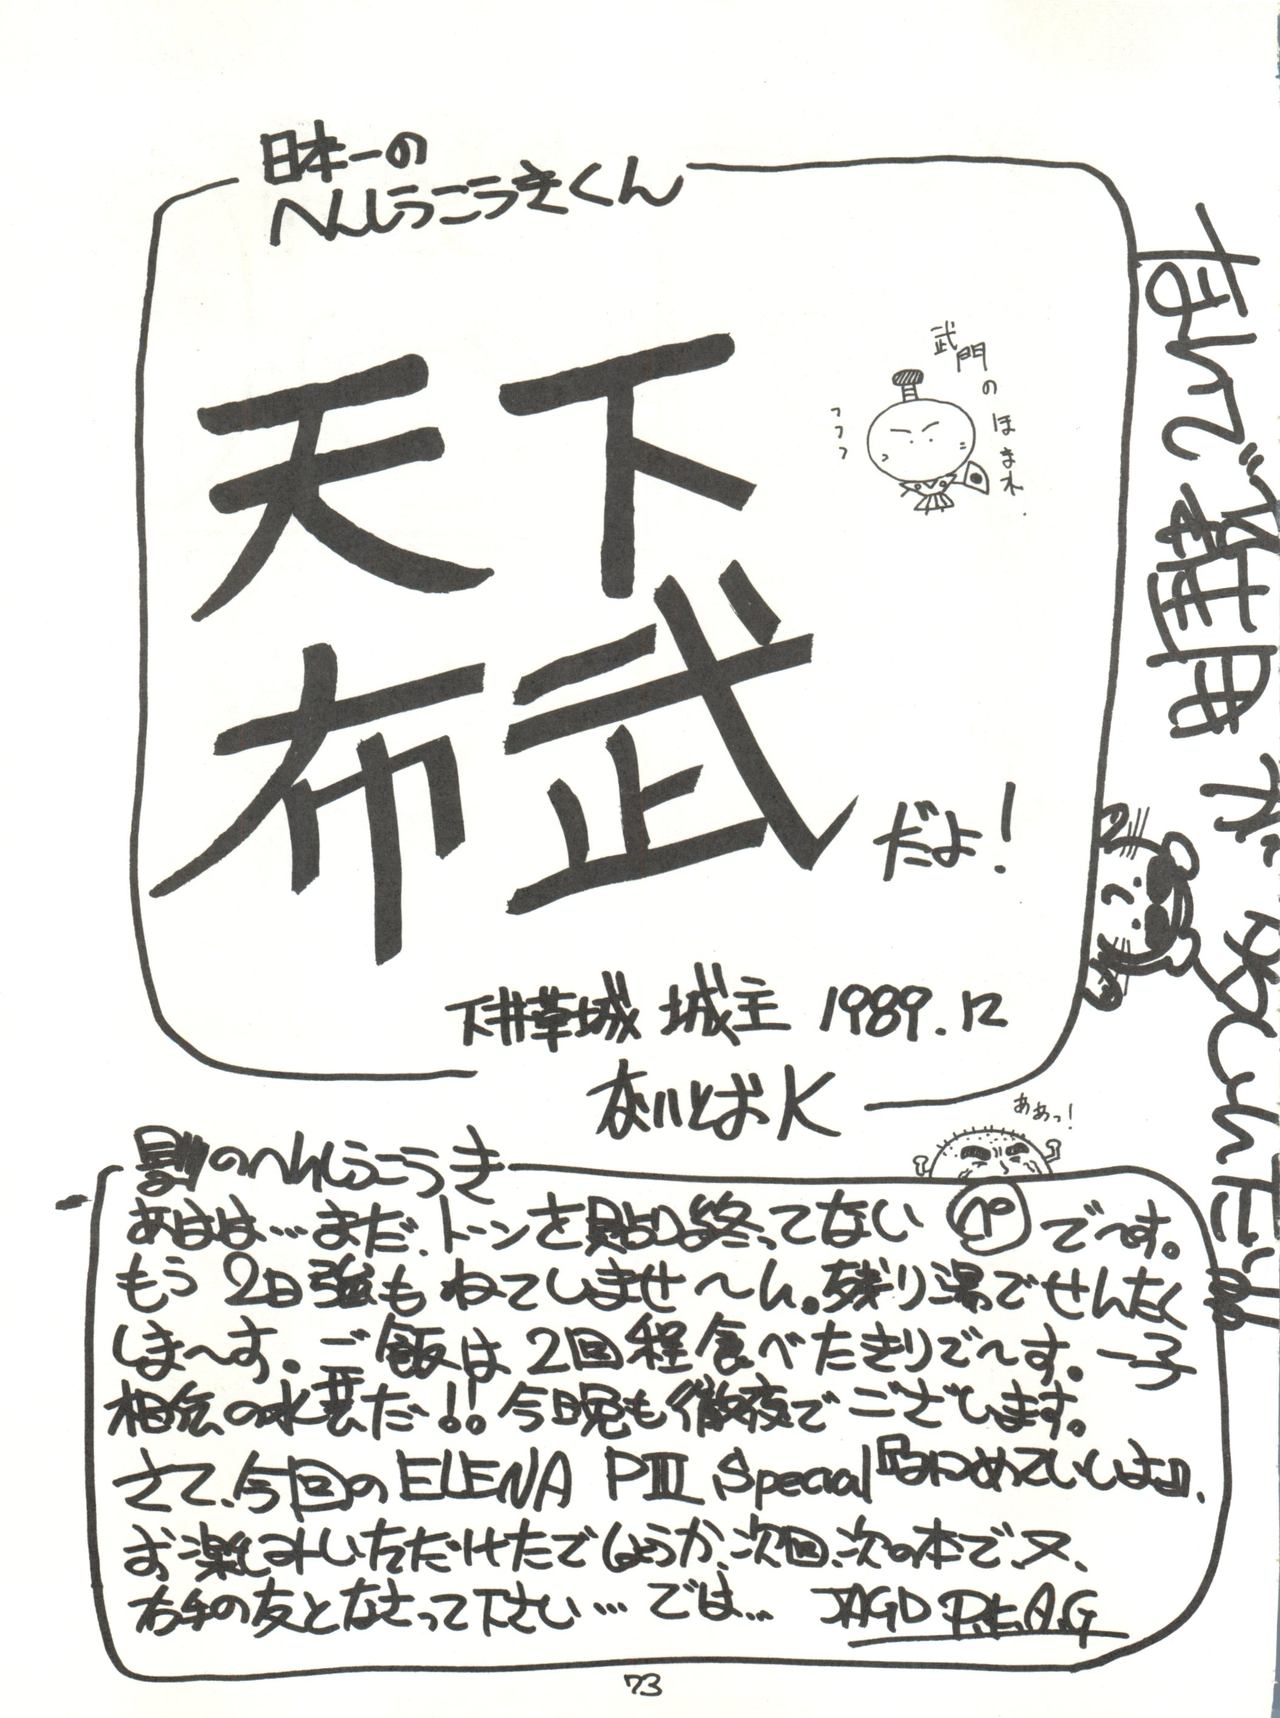 日本一の
へんしうこうきくん
天下
布武
だよ！
武門のほまれ
フフフ
下井草城 城主 1989.12
ないとおK
なんで雑用が
ああっ!
別のへんしうこうき
あはは…まだ、トーンを貼り終ってない ㋬ で〜す。
もう 2日強も ねてしませ〜ん。残り湯でせんたく
しま〜す。ご飯は 2回程食べたきりで〜す。一子
相伝の水芸だ!! 今晩も徹夜でございます。
さて、今回の ELENA PIII Special
お楽しみいただけたでしょうか、次回、次の本で、又、
右手の友となさって下さい… では… JAGD P.E.A.G
73